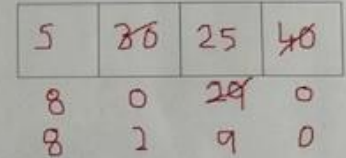 5 30 25 40
8 0 29 0
8 2 9 0